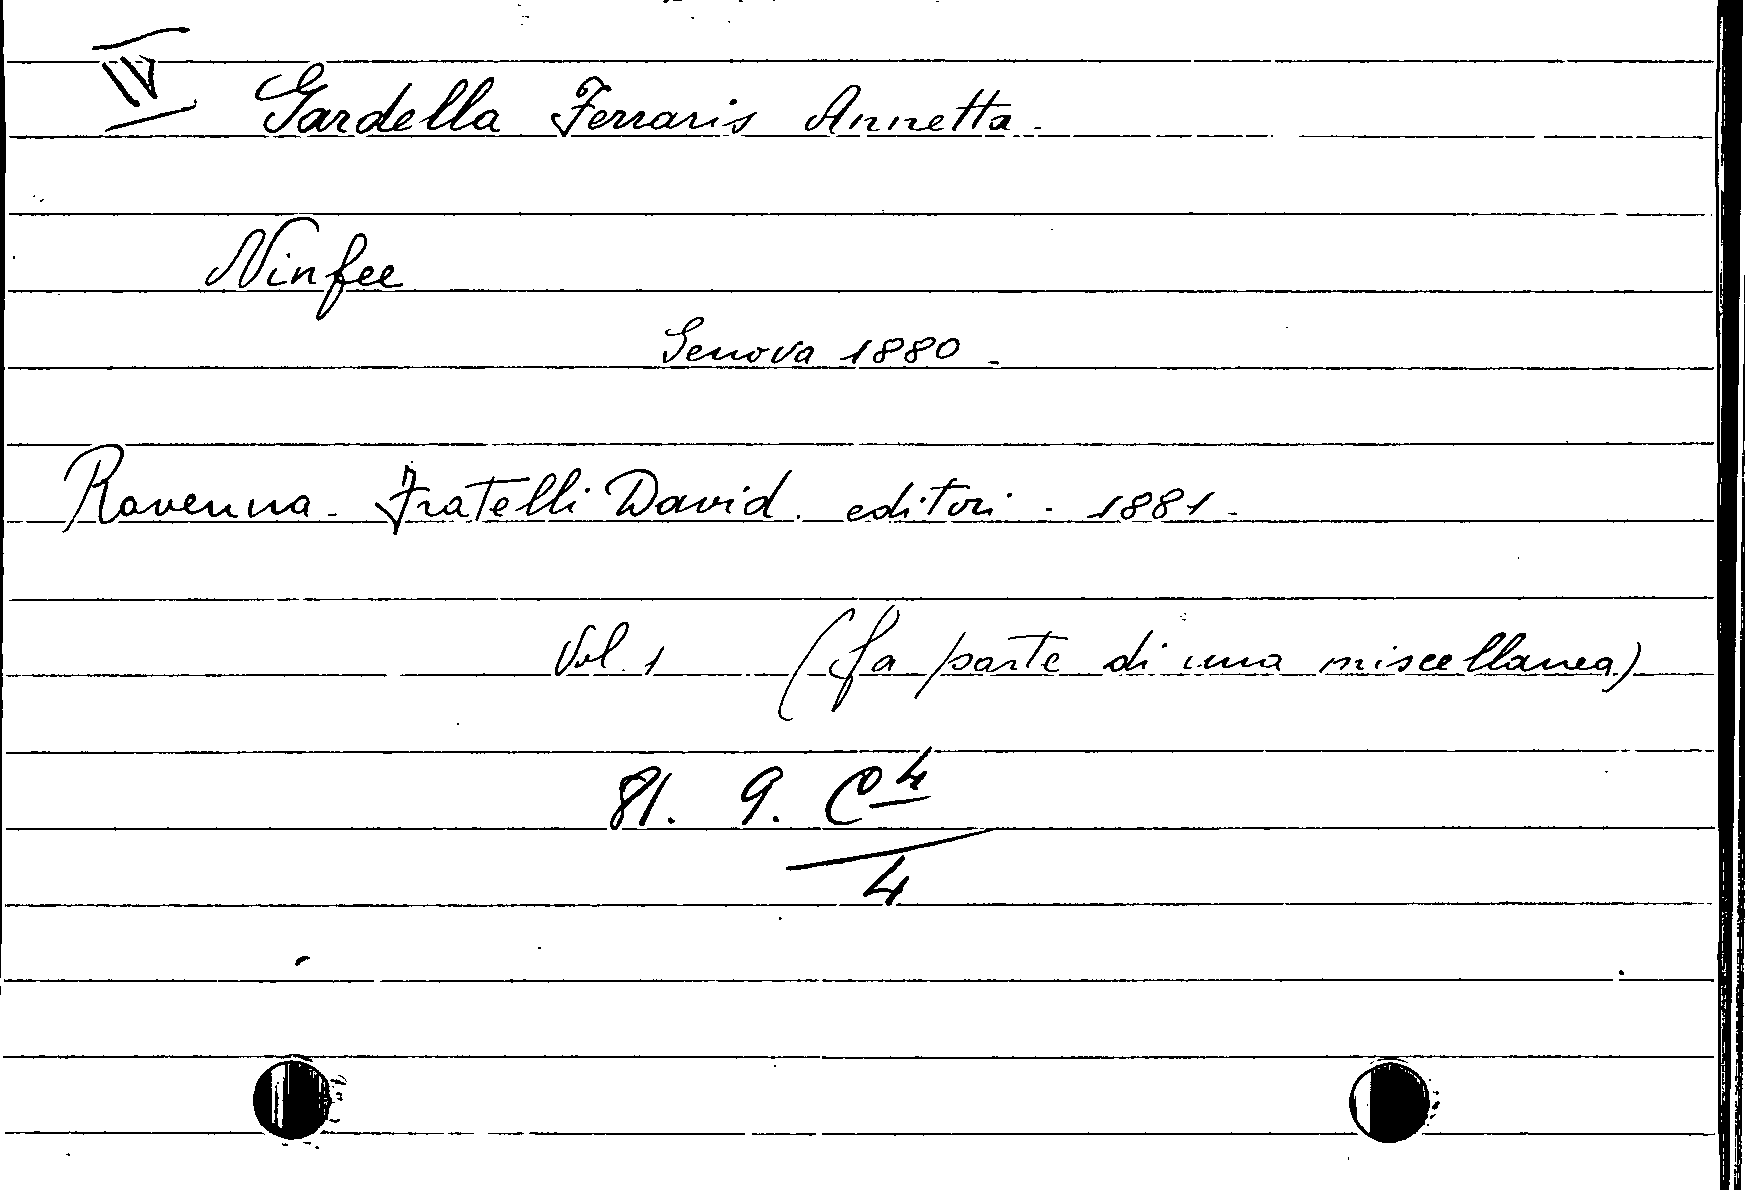 IV Gardella Ferraris Annetta.
Ninfee
Genova 1880 -
Ravenna - Fratelli David. editori - 1881 -
Vol. 1 (fa parte di una miscellanea)
81. 9. C 4
4